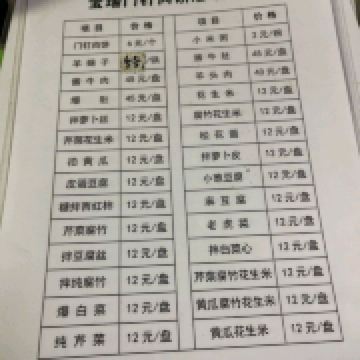 门钉肉饼
项目 价格
门钉肉饼 6元/个
羊蝎子 /锅
酱牛肉 48元/盘
爆肚 45元/盘
拌萝卜丝 12元/盘
芹菜花生米 12元/盘
拍黄瓜 12元/盘
皮蛋豆腐 12元/盘
12元/盘
芹菜腐竹 12元/盘
拌豆腐丝 12元/盘
拌炖腐竹 12元/盘
爆白菜 12元/盘
炖芹菜 12元/盘
项目 价格
小米粥 2元/碗
酱牛肚 45元/盘
羊头肉 40元/盘
花生米 12元/盘
腐竹花生米 12元/盘
松花蛋 12元/盘
拌萝卜皮 12元/盘
小葱豆腐 12元/盘
麻豆腐 12元/盘
老虎菜 12元/盘
拌白菜心 12元/盘
芹菜腐竹花生米 12元/盘
黄瓜腐竹花生米 12元/盘
黄瓜花生米 12元/盘